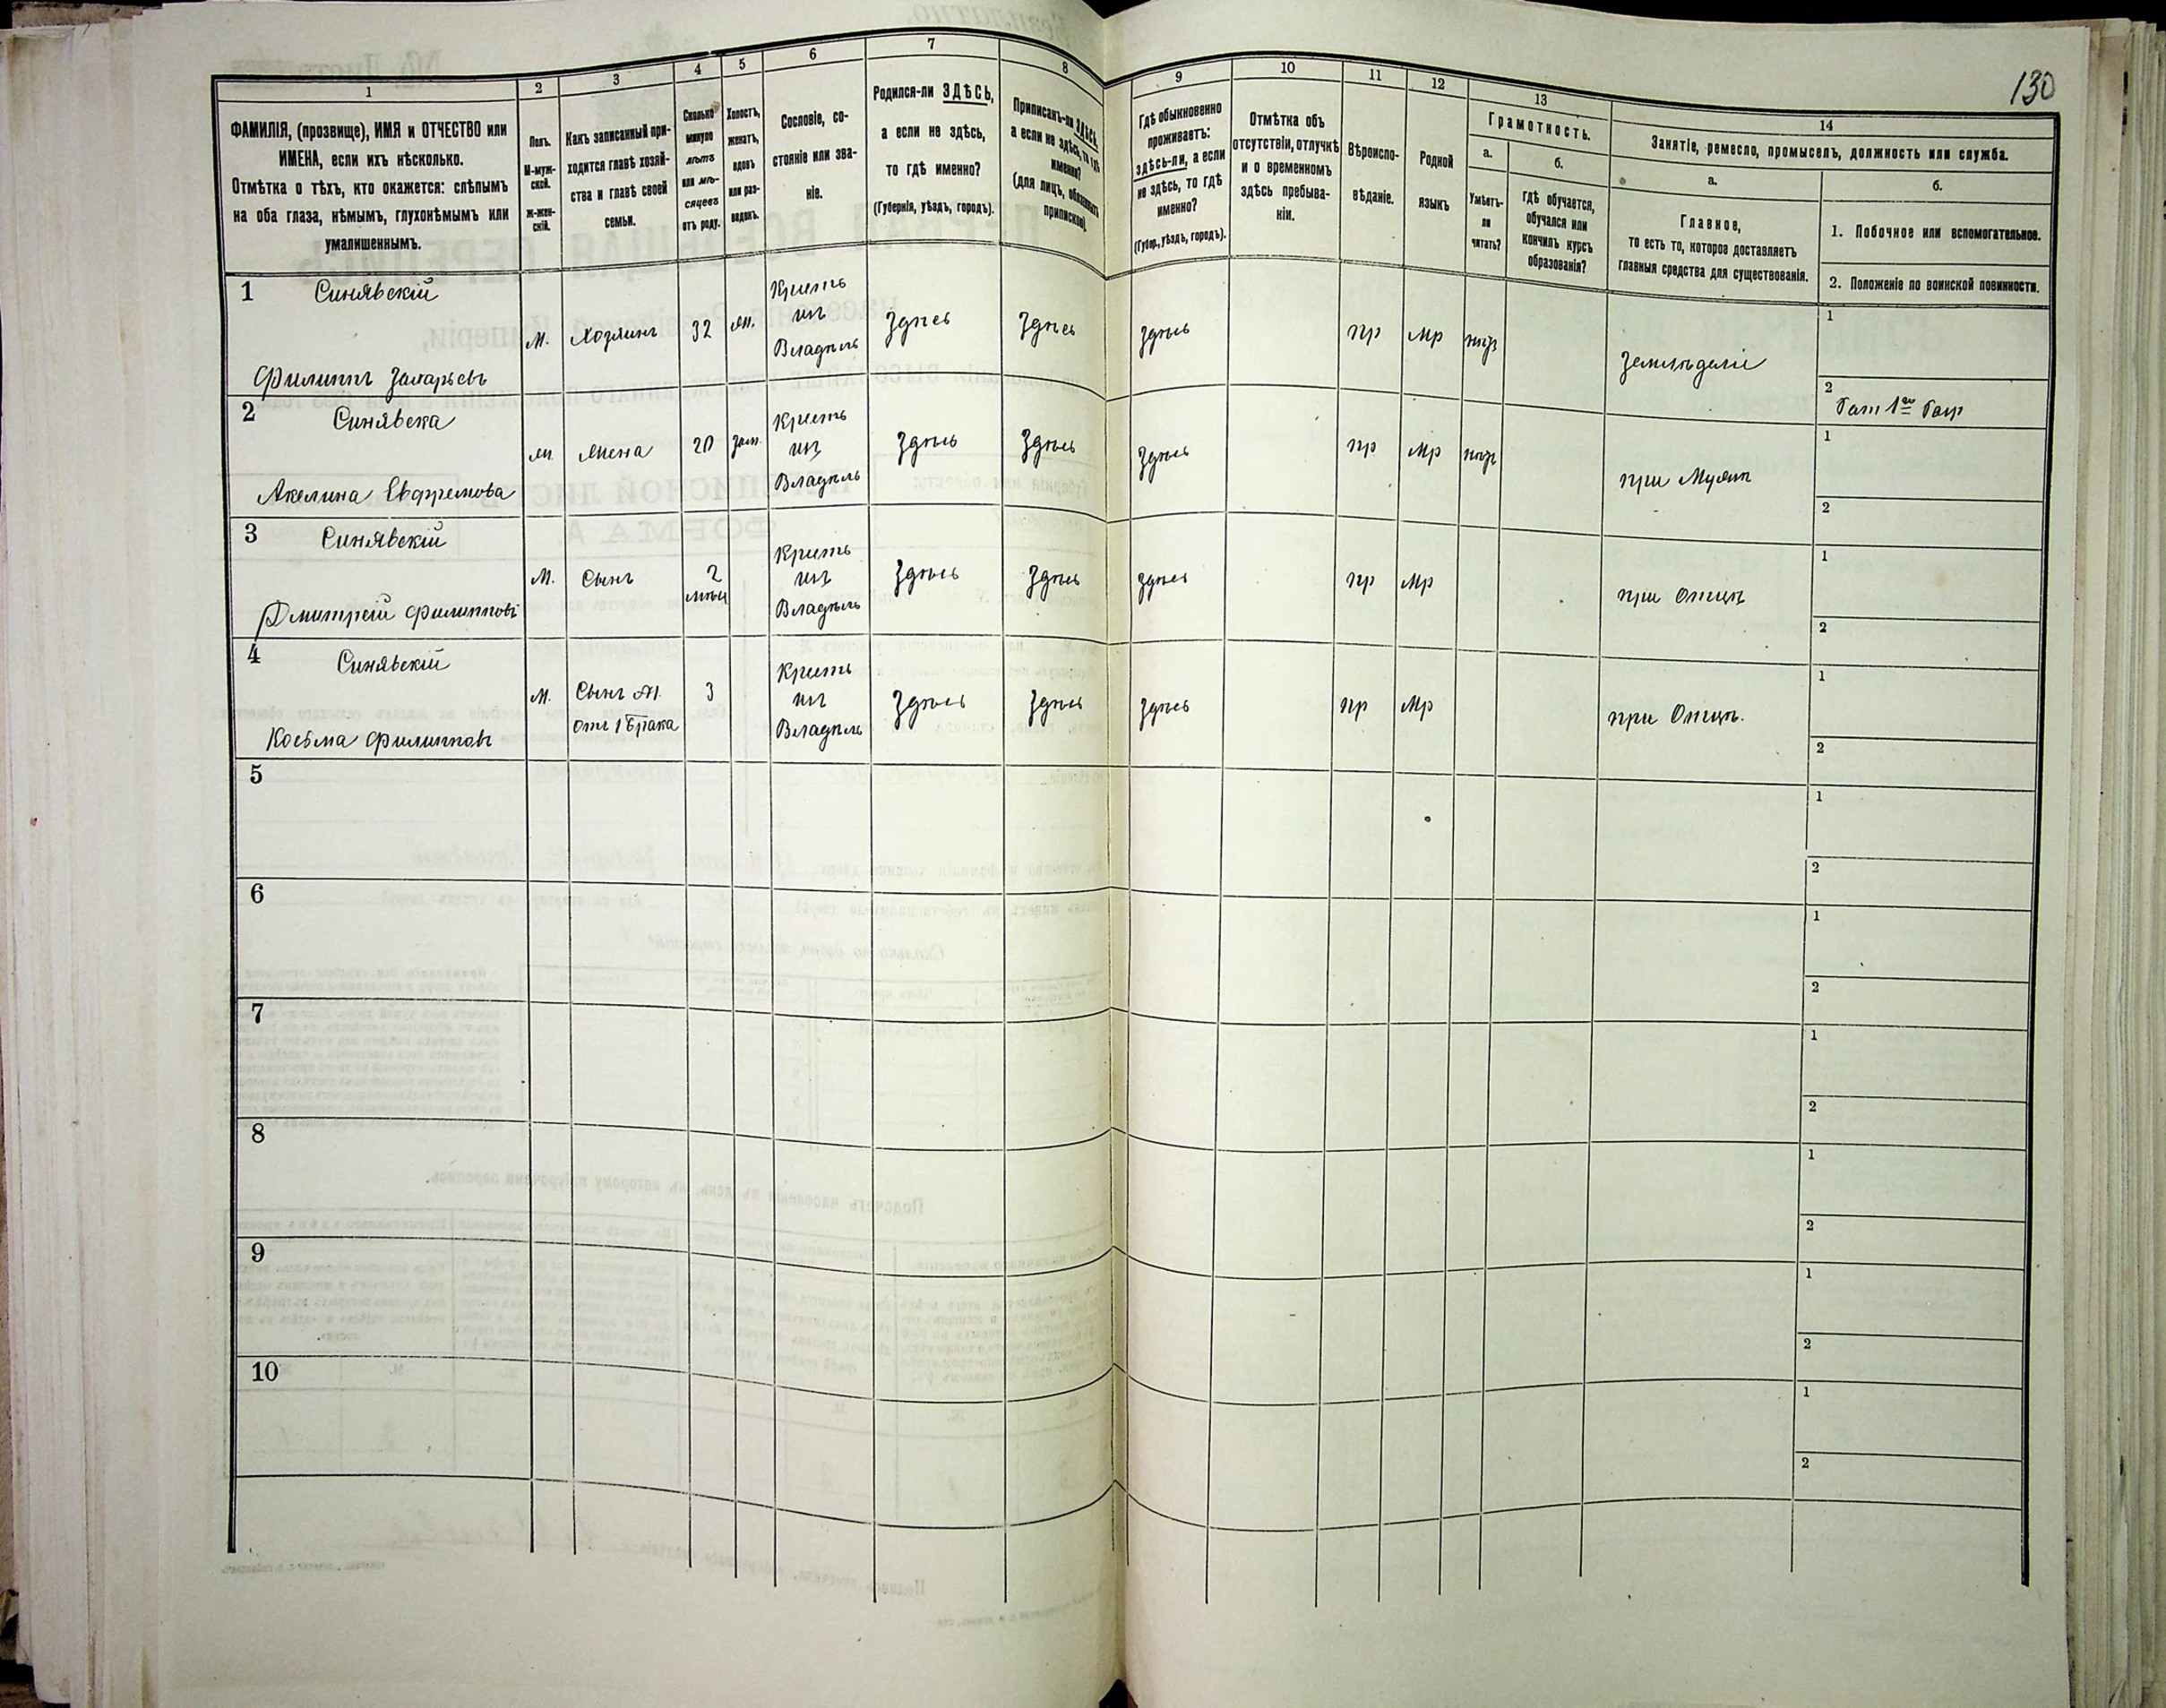 130
1
ФАМИЛІЯ, (прозвище), ИМЯ и ОТЧЕСТВО или
ИМЕНА, если ихъ нѣсколько.
Отмѣтка о тѣхъ, кто окажется: слѣпымъ
на оба глаза, нѣмымъ, глухонѣмымъ или
умалишеннымъ.
2
Полъ.
М-муж-
ской.
Ж-жен-
скій.
3
Какъ записанный при-
ходится главѣ хозяй-
ства и главѣ своей
семьи.
4
Сколько
минуло
лѣтъ
или мѣ-
сяцевъ
отъ роду.
5
Холостъ,
женатъ,
вдовъ
или раз-
веденъ.
6
Сословіе, со-
стояніе или зва-
ніе.
7
Родился-ли ЗДѢСЬ,
а если не здѣсь,
то гдѣ именно?
(Губернія, уѣздъ, городъ).
8
Приписанъ-ли ЗДѢСЬ,
а если не здѣсь, то гдѣ
именно?
(для лицъ, обязанныхъ
припискою).
9
Гдѣ обыкновенно
проживаетъ:
ЗДѢСЬ-ли, а если
не здѣсь, то гдѣ
именно?
(Губер., уѣздъ, городъ).
10
Отмѣтка объ
отсутствіи, отлучкѣ
и о временномъ
здѣсь пребыва-
ніи.
11
Вѣроиспо-
вѣданіе.
12
Родной
языкъ
13
Грамотность.
а.
Умѣетъ-
ли
читать?
б.
гдѣ обучается,
обучался или
кончилъ курсъ
образованія?
14
Занятіе, ремесло, промыселъ, должность или служба.
а.
Главное,
то есть то, которое доставляетъ
главныя средства для существованія.
б.
1. Побочное или вспомогательное.
2. Положеніе по воинской повинности.
1 Синявскій
Филиппъ Захарьевъ
М.
Хозяинъ
32
Ж.
Крестъ
изъ
Владѣль
Здѣсь
Здѣсь
Здѣсь
пр
Мр
нѣтъ
Земледѣліе
1
2
2 Синявска
Акелина Евфремова
Ж.
Жена
20
зам.
Крестъ
изъ
Владѣль
Здѣсь
Здѣсь
Здѣсь
пр
Мр
нѣтъ
при Мужѣ
1
2
3 Синявскій
Дмитрій Филипповъ
М.
Сынъ
2
Крестъ
изъ
Владѣль
Здѣсь
Здѣсь
Здѣсь
пр
Мр
при Отцѣ
1
2
4 Синявскій
Косьма Филипповъ
М.
Сынъ
отъ 1 брака
3
Крестъ
изъ
Владѣль
Здѣсь
Здѣсь
Здѣсь
пр
Мр
при Отцѣ.
1
2
5
1
2
6
1
2
7
1
2
8
1
2
9
1
2
10
1
2